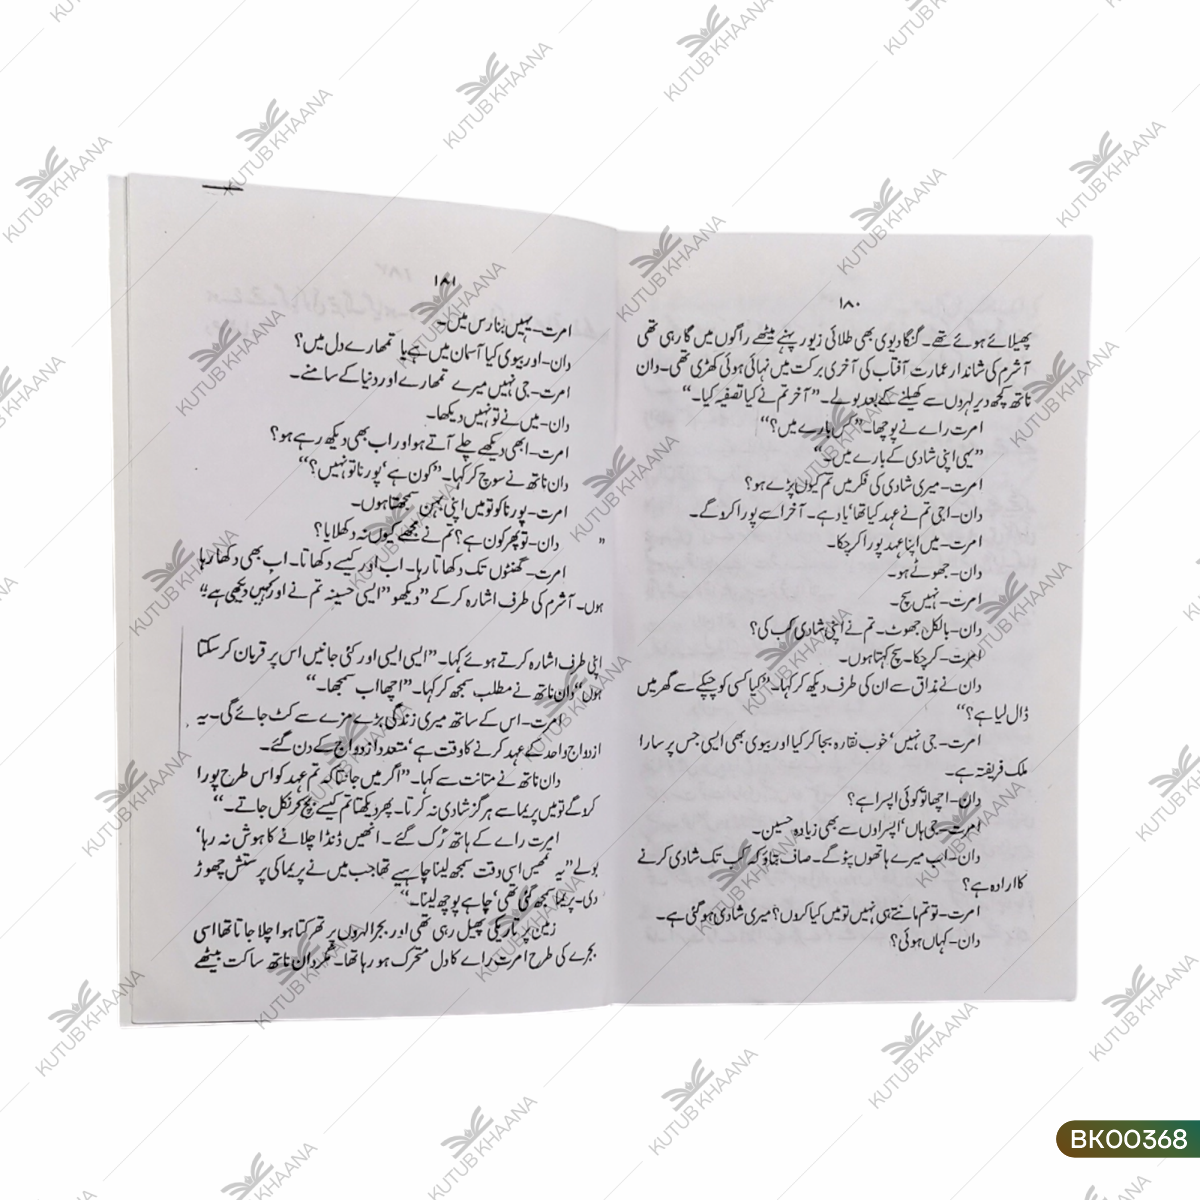 ۱۸۰
پھیلائے ہوئے تھے۔ گنگا دیوی بھی طلائی زیور پہنے بیٹھے راگوں میں گا رہی تھی
آشرم کی شاندار عمارت آفتاب کی آخری برکت میں نہائی ہوئی کھڑی تھی۔ دان
ناتھ کچھ دیر لہروں سے کھیلنے کے بعد بولے۔ ”آخر تم نے کیا تصفیہ کیا۔“
امرت رائے نے پوچھا۔ ”کس بارے میں؟“
”یہی اپنی شادی کے بارے میں۔“
امرت۔ میری شادی کی فکر میں تم کیوں پڑے ہو؟
دان۔ اجی تم نے عہد کیا تھا‘ یاد ہے۔ آخر اسے پورا کرو گے۔
امرت۔ میں اپنا عہد پورا کر چکا۔
دان۔ جھوٹے ہو۔
امرت۔ نہیں سچ۔
دان۔ بالکل جھوٹ۔ تم نے اپنی شادی کب کی؟
امرت۔ کر چکا۔ سچ کہتا ہوں۔
دان نے مذاق سے ان کی طرف دیکھ کر کہا۔ ”کیا کسی کو چپکے سے گھر میں
ڈال لیا ہے؟“
امرت۔ جی نہیں‘ خوب نقارہ بجا کر کیا اور بیوی بھی ایسی جس پر سارا
ملک فریفتہ ہے۔
دان۔ اچھا تو کوئی اپسرا ہے؟
امرت۔ جی ہاں‘ اپسراؤں سے بھی زیادہ حسین۔
دان۔ اب میرے ہاتھوں پٹو گے۔ صاف بتاؤ کہ کب تک شادی کرنے
کا ارادہ ہے؟
امرت۔ تو تم مانتے ہی نہیں تو میں کیا کروں؟ میری شادی ہو گئی ہے۔
دان۔ کہاں ہوئی؟
۱۸۱
امرت۔ یہیں بنارس میں۔
دان۔ اور بیوی کیا آسمان میں ہے یا تمھارے دل میں؟
امرت۔ جی نہیں میرے تمھارے اور دنیا کے سامنے۔
دان۔ میں نے تو نہیں دیکھا۔
امرت۔ ابھی دیکھے چلے آتے ہو اور اب بھی دیکھ رہے ہو؟
دان ناتھ نے سوچ کر کہا۔ ”کون ہے‘ پورنا تو نہیں؟“
امرت۔ پورنا کو تو میں اپنی بہن سمجھتا ہوں۔
” دان۔ تو پھر کون ہے؟ تم نے مجھے کیوں نہ دکھلایا؟
امرت۔ گھنٹوں تک دکھاتا رہا۔ اب اور کیسے دکھاتا۔ اب بھی دکھا رہا
ہوں۔ آشرم کی طرف اشارہ کر کے ”دیکھو“ ایسی حسینہ تم نے اور کہیں دیکھی ہے“
اپنی طرف اشارہ کرتے ہوئے کہا۔ ”ایسی ایسی اور کئی جانیں اس پر قربان کر سکتا
ہوں“ دان ناتھ نے مطلب سمجھ کر کہا۔ ”اچھا اب سمجھا۔“
امرت۔ اس کے ساتھ میری زندگی بڑے مزے سے کٹ جائے گی۔ یہ
ازدواج واحد کے عہد کرنے کا وقت ہے‘ متعدد ازدواج کے دن گئے۔
دان ناتھ نے متانت سے کہا۔ ”اگر میں جانتا کہ تم عہد کو اس طرح پورا
کرو گے تو میں پریما سے ہرگز شادی نہ کرتا۔ پھر دیکھتا تم کیسے بچ کر نکل جاتے۔“
امرت رائے کے ہاتھ رک گئے۔ انھیں ڈنڈا چلانے کا ہوش نہ رہا‘
بولے ”یہ تمھیں اسی وقت سمجھ لینا چاہیے تھا جب میں نے پریما کی پرستش چھوڑ
دی۔ پریما سمجھ گئی تھی‘ چاہے پوچھ لینا۔“
زمین پر تاریکی پھیل رہی تھی اور بجرا لہروں پر تھرکتا ہوا چلا جاتا تھا اسی
بجرے کی طرح امرت رائے کا دل متحرک ہو رہا تھا۔ مگر دان ناتھ ساکت بیٹھے
KUTUB KHAANA
BK00368